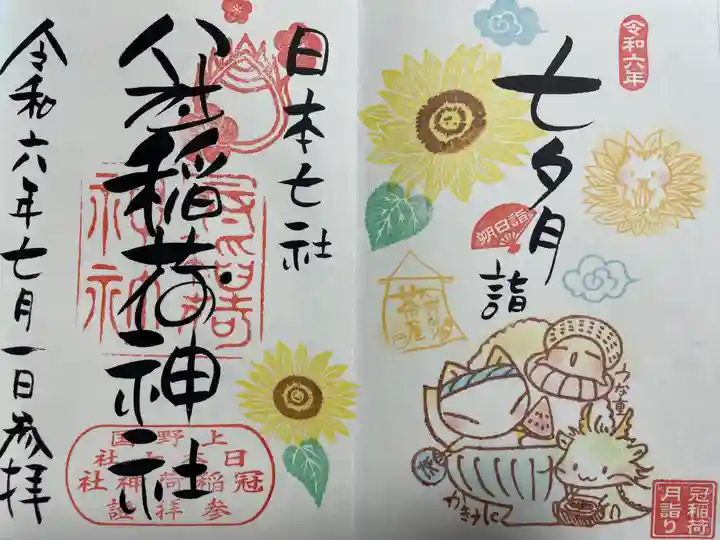 令和六年
七夕月詣
朔日詣
うな重
冠稲荷
月詣り
日本七社
冠稲荷神社
上野国
日本七社
冠稲荷神社
参拝証
令和六年七月一日参拝